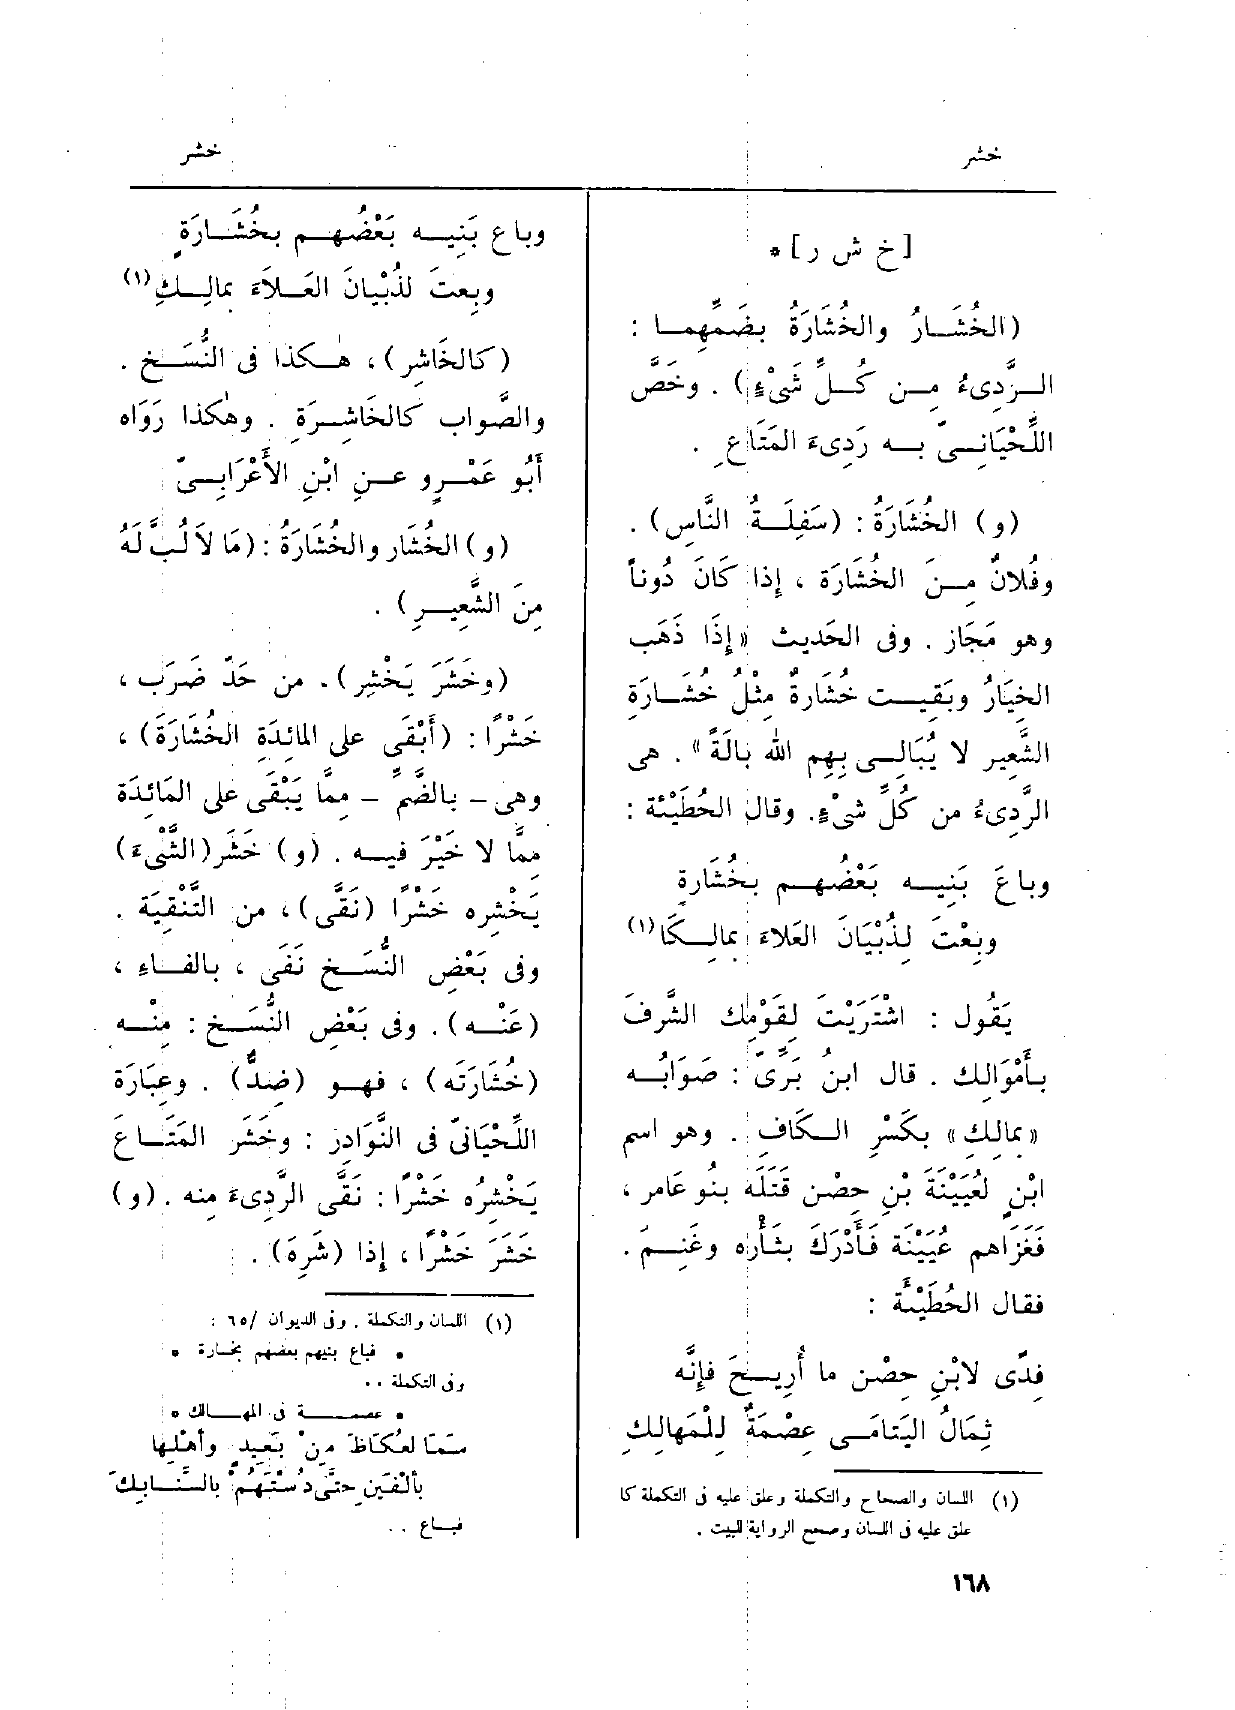 خشر
خشر
[خ ش ر] *
(الخُشَـارُ والخُشَارَةُ بضَمِّهِمـا :
الـرَّدِىءُ مـن كـلِّ شَىْءٍ) . وخَصَّ
اللِّحْيَانِـىّ بـه رَدِىءَ المَتَاعِ .
(و) الخُشَارَةُ : (سَفِلَـةُ النَّاسِ) .
وفُلانٌ مِـنَ الخُشَارَة ، إذا كَانَ دُوناً
وهو مَجَاز . وفى الحَديث «إذَا ذَهَب
الخِيَارُ وبَقِيـت خُشَارةٌ مِثْلُ خُشَـارَةِ
الشَّعِير لا يُبَالِـى بِهِم اللهُ بالَةً» . هى
الرَّدِىءُ من كُلِّ شىْءٍ. وقال الحُطَيْئة :
وباعَ بَنِيـه بَعْضُهـم بخُشَارةٍ
وبِعْتَ لِذُبْيَانَ العَلاءَ بمالِـكَا(١)
يَقُول : اشْتَرَيْتَ لقَوْمِك الشَّرفَ
بـأَمْوَالك . قال ابنُ بَرِّىّ : صَوَابُـه
«بمالِكِ» بكَسْرِ الـكَافِ . وهو اسم
ابْنٍ لعُيَيْنَةَ بْنِ حِصْن قَتَلَه بنو عَامر ،
فَغَزَاهم عُيَيْنَة فَأَدْرَكَ بثَأْرِه وغَنِـمَ .
فقال الحُطَيْئَة :
فِدًى لابْنِ حِصْن ما أُرِيـحَ فإِنَّه
ثِمَالُ اليَتَامَـى عِصْمَةٌ لِلْمَهالِك
(١) اللسان والصحاح والتكملة وعلق عليه فى التكملة كا
علق عليه فى اللسان وصحح الرواية البيت .
وباع بَنِيـه بَعْضُهـم بخُشَـارَةٍ
وبعتَ لذُبْيَانَ العَـلاَءَ بمالِـكِ(١)
(كالخَاشِر) ، هٰـكذا فى النُّسَـخ .
والصَّواب كالخَاشِـرَة . وهٰكذا رَوَاه
أَبُو عَمْـرٍو عـنِ ابْنِ الأَعْرَابِـىّ
(و) الخُشَار والخُشَارَةُ : (مَا لاَ لُبَّ لَهُ
مِنَ الشَّعِيـرِ) .
(وخَشَرَ يَخْشِر) . من حَدّ ضَرَب ،
خَشْرًا : (أَبْقَى على المائِدَةِ الخُشَارَةَ) ،
وهى - بالضَّمّ - مِمَّا يَبْقَى على المَائِدَة
مِمَّا لا خَيْرَ فيـه . (و) خَشَر (الشَّىْءَ)
يَخْشِره خَشْرًا (نَقَّى) ، من التَّنْقِيَة .
وفى بَعْضِ النُّسَـخ نَفَى ، بالفـاءِ ،
(عَنْـه) . وفى بَعْضِ النُّسَـخ : مِنْـه
(خُشَارَتَه) ، فهـو (ضِدٌّ) . وعِبَارَة
اللِّحْيَانىّ فى النَّوَادِرِ : وخَشَر المَتَـاعَ
يَخْشِرُه خَشْرًا : نَقَّى الرَّدِىءَ مِنه . (و)
خَشَرَ خَشْرًا ، إذا (شَرِهَ) .
(١) اللسان والتكملة . وفى الديوان /٦٥ :
* فباع بنيهم بعضهم بخسارة *
وفى التكملة . .
* عصمـــة فى المهـالك *
سَمَا لعُكَاظَ مِنْ بَعِيدٍ وأَهْلِها
بأَلْفَيْنِ حتَّى دُسْتَهُمْ بالسَّنَابِكَ
فبـاع . .
١٦٨